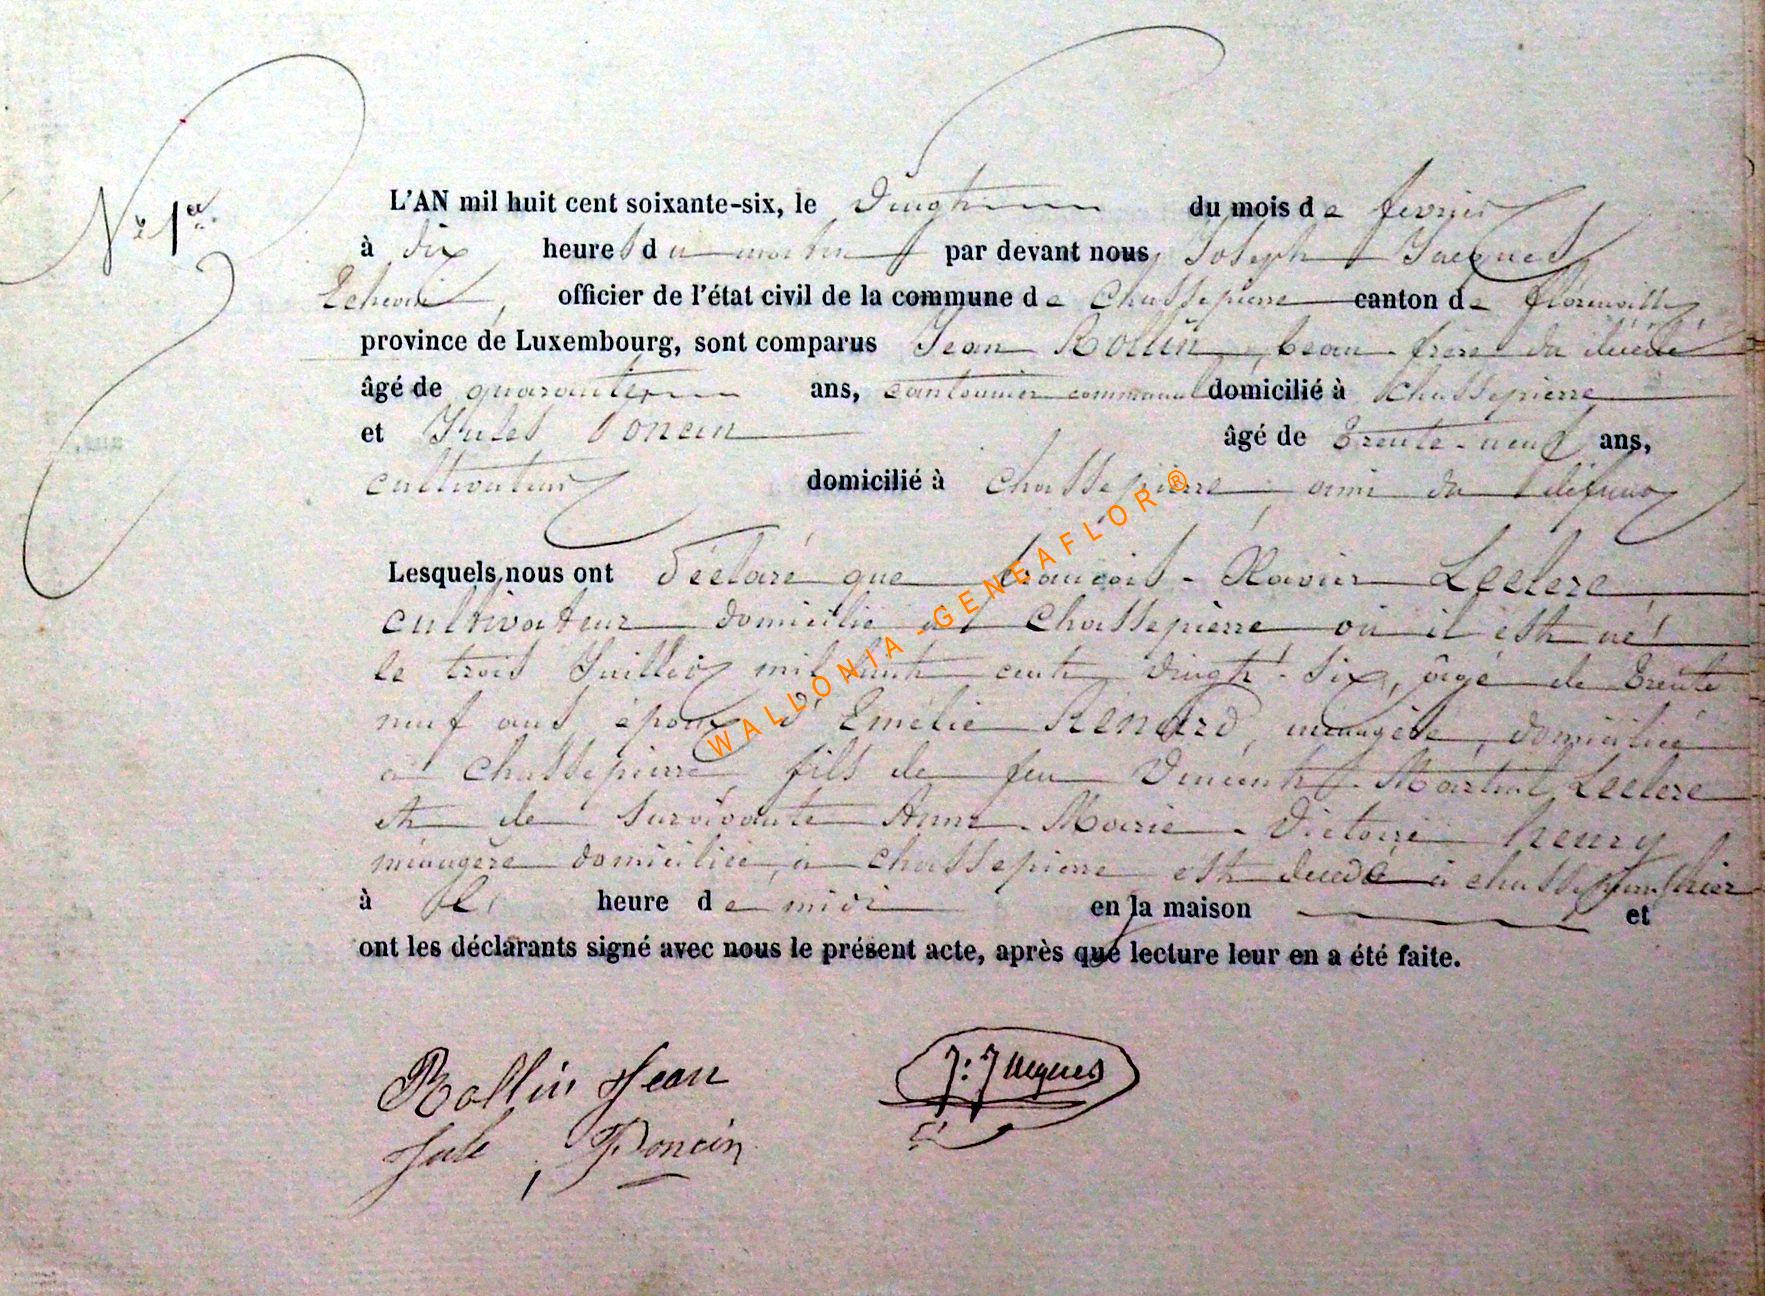 N° 1er
L'AN mil huit cent soixante-six, le vingt du mois de fevrier
à dix heures du matin par devant nous Joseph Jacques
Echevin, officier de l'état civil de la commune de Chassepierre canton de florenville
province de Luxembourg, sont comparus Jean Rollin, beau-frère du décédé
âgé de quarante ans, cantonnier communal domicilié à Chassepierre
et Jules Poncin âgé de trente-neuf ans,
cultivateur domicilié à Chassepierre, ami du défunt
Lesquels nous ont déclaré que françois-Xavier Leclere,
cultivateur domicilié à Chassepierre où il est né
le trois Juillet mil huit cent vingt-six, âgé de trente
neuf ans, époux d'Emélie Renard, ménagère, domiciliée
à Chassepierre, fils de feu Vincent Martin Leclere
et de survivante Anne-Marie-Victoire henry
ménagère domiciliée, à Chassepierre est décédé à chassepierre hier
à heure de midi en la maison et
ont les déclarants signé avec nous le présent acte, après que lecture leur en a été faite.
Rollin Jean
J: Jacques
Jule Poncin
WALLONIA-GENEAFLOR ®